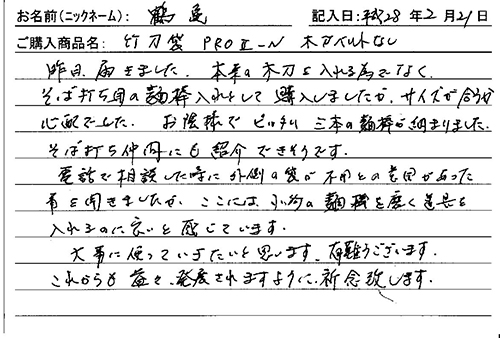 お名前(ニックネーム): 鶴亀 記入日:平成28年2月21日
ご購入商品名: 竹刀袋 PROⅡ-N 木刀ベルトなし
昨日届きました。本来の木刀を入れる為でなく、
そば打ち用の麺棒入れとして購入しましたが、サイズが合うか
心配でした。お陰様でピッタリ三本の麺棒が納まりました。
そば打ち仲間にも紹介できそうです。
電話で相談した時に外側の袋が不用との意見があった
有を聞きましたが、ここには、小物の麺棒を磨く道具を
入れるのに良いと感じています。
大事に使っていきたいと思います。有難うございます。
これからも益々、発展されますように、祈念致します。